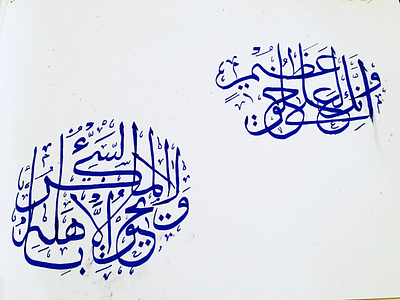 وَإِنَّكَ لَعَلَى خُلُقٍ عَظِيمٍ
وَلَا يَحِيقُ الْمَكْرُ السَّيِّئُ إِلَّا بِأَهْلِهِ